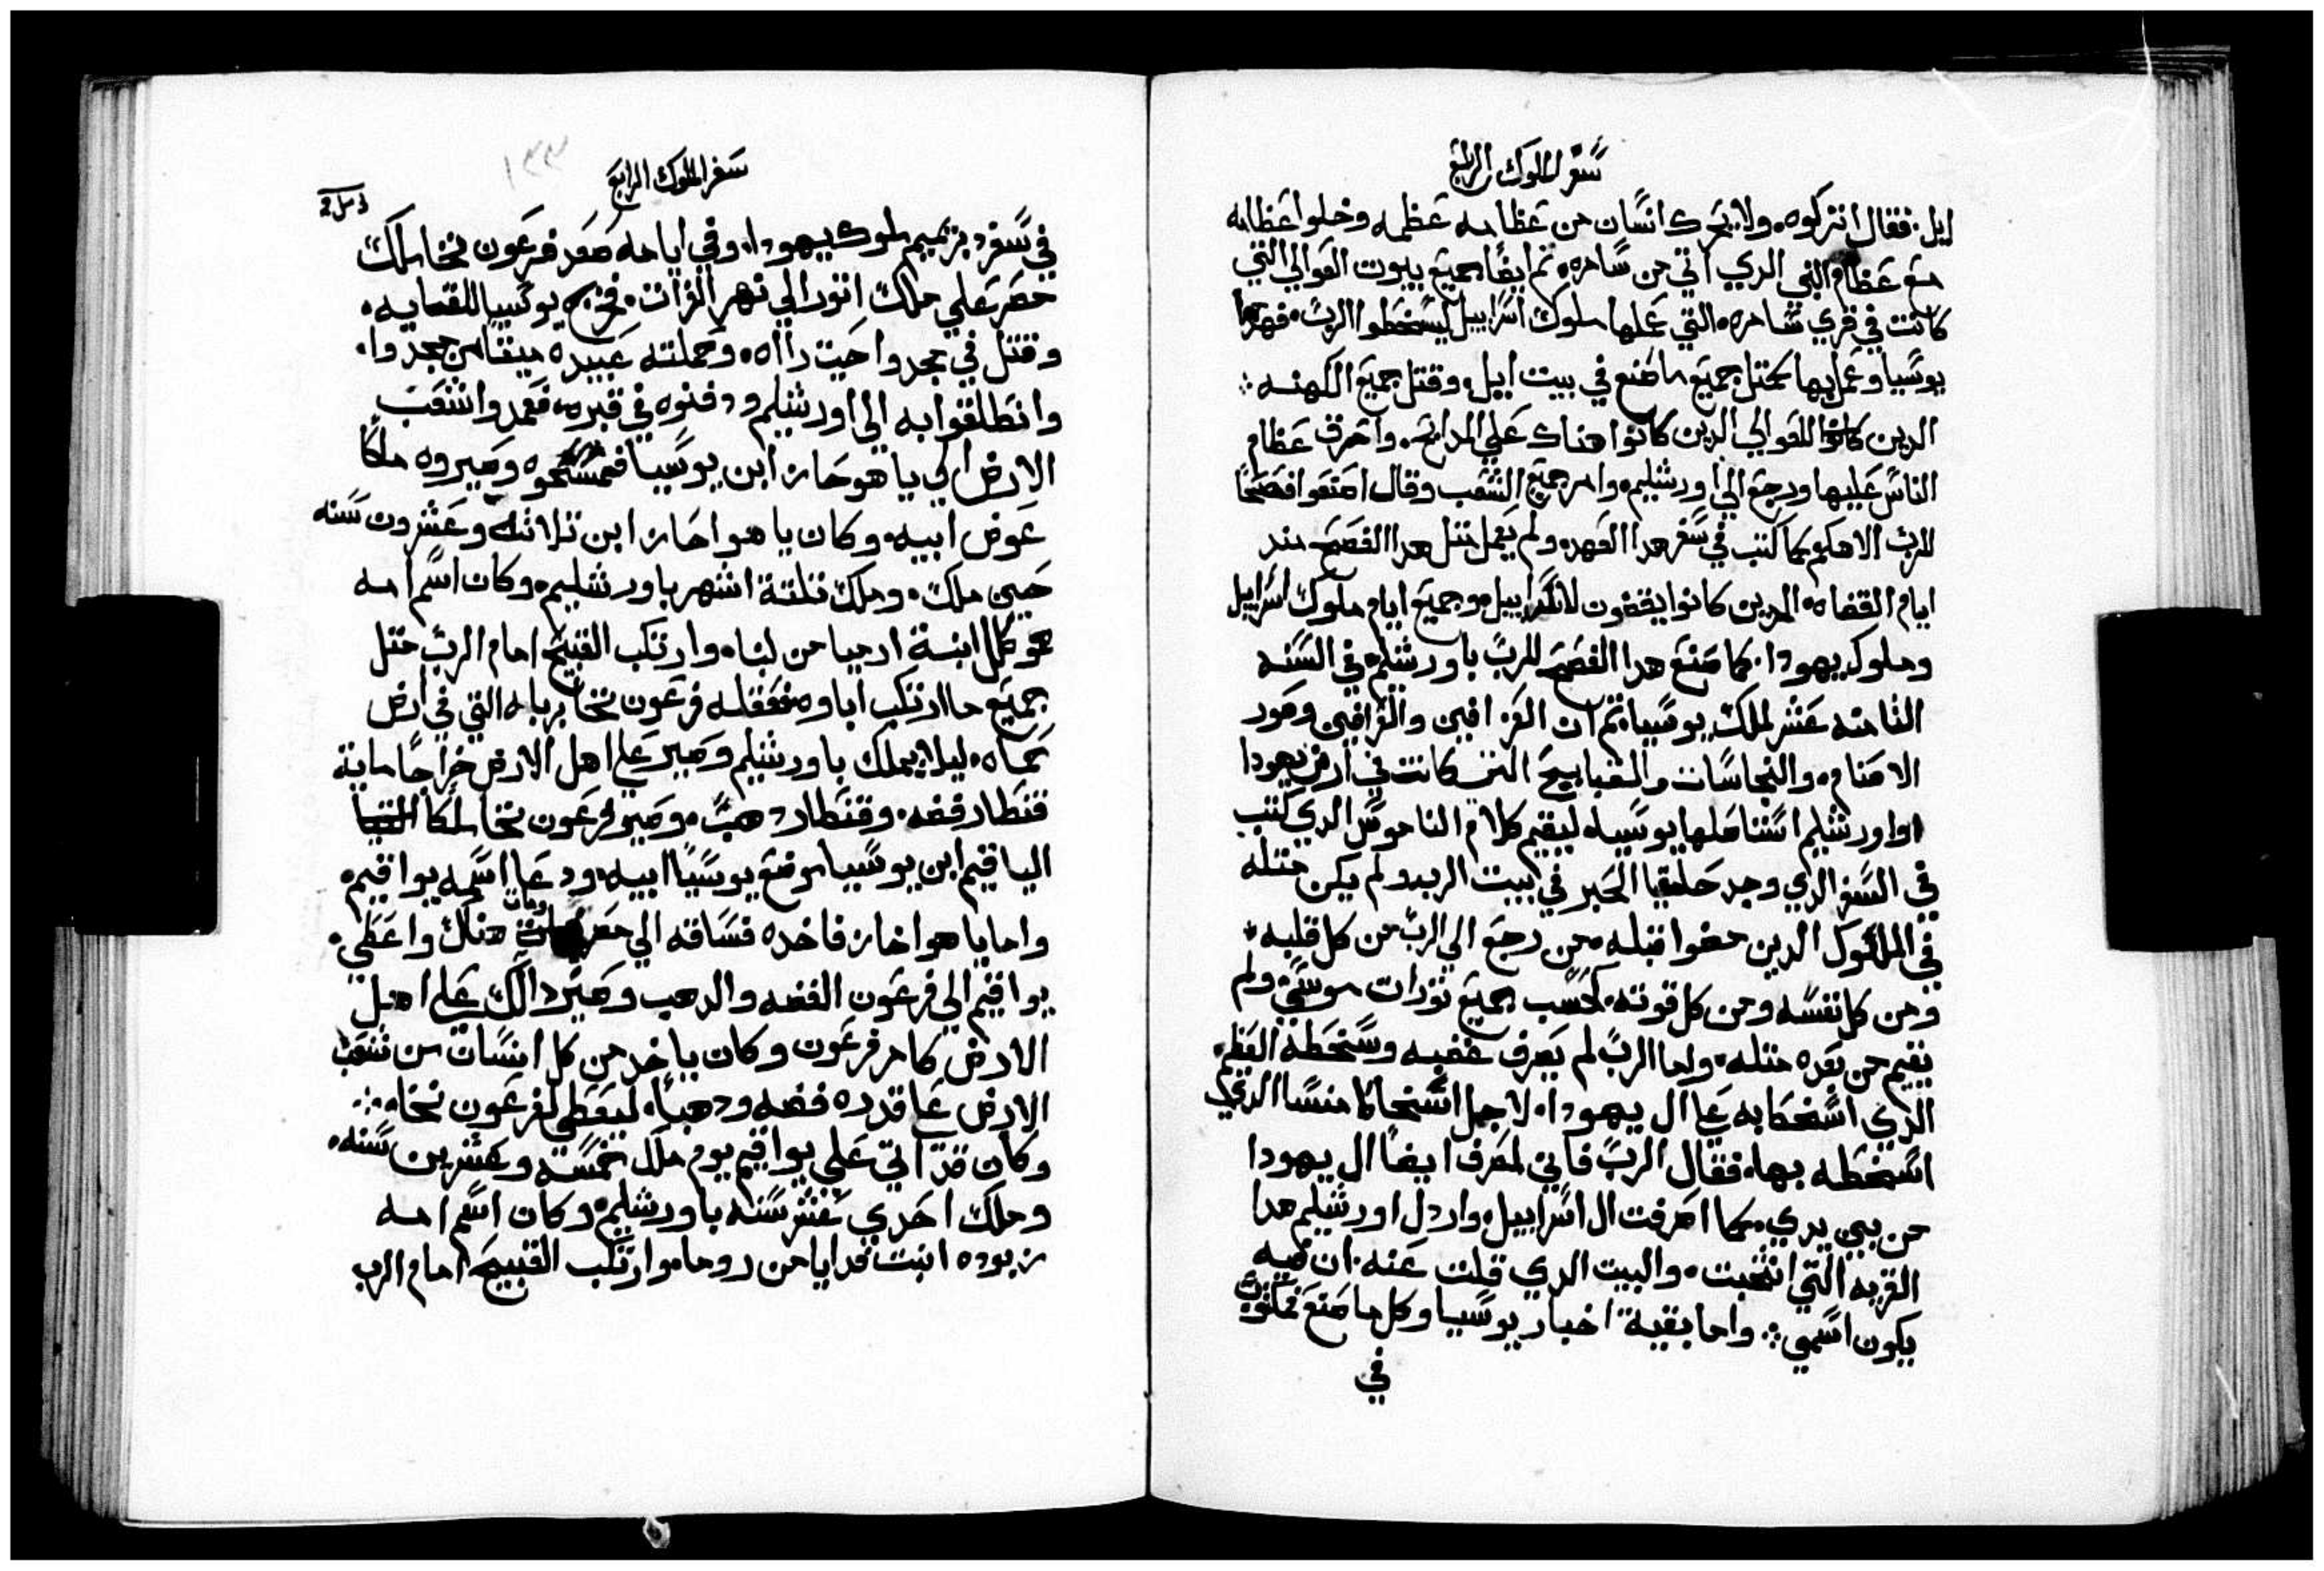 سفر الملوك الرابع
ايل. فقال اتركوه. ولا يحرك انسان من عظامه عظمه وخلوا عظامه
مع عظام النبي الدي اتي من سامره. تم ايضا جميع بيوت العوالي التي
كانت في قري سامره. التي عملها ملوك اسراييل ليسخطوا الرب. فهدمها
يوسيا وعمل بها كمتل جميع ما صنع في بيت ايل. وقتل جميع الكهنه
الدين كانوا للعوالي الدين كانوا هناك علي المدابح. واحرق عظام
الناس عليها ورجع الي اورشليم. وامر جميع الشعب وقال اصنعوا فصحا
للرب الاهكم كما كتب في سفر هدا العهد. ولم يعمل متل هدا الفصح مند
ايام القضاه. الدين كانوا يقضون لاسراييل. وجميع ايام ملوك اسراييل
وملوك يهودا. كما صنع هدا الفصح للرب باورشليم في السنه
التامنه عشر لملك يوسيا. تم ان العرافين والقرافين وصور
الاصنام. والنجاسات والقبايح التي كانت في ارض يهودا
او اورشليم استاصلها يوسيا. ليقيم كلام الناموس الدي كتب
في السفر الدي وجد حلقيا الحبر في بيت الرب. ولم يكن متله
في الملوك الدين مضوا قبله. من رجع الي الرب من كل قلبه
ومن كل نفسه ومن كل قوته. كحسب جميع تورات موسي. ولم
يقيم من بعده متله. واما الرب لم يصرف غضبه وسخطه العظيم.
الدي اسخطا به علي ال يهودا. لاجل اسخاطا منسا الدي
اسخطه بها. فقال الرب فاني لمصرف ايضا ال يهودا
من بين يدي. كما اصرفت ال اسراييل. واردل اورشليم هدا
القريه التي انتخبت. والبيت الدي قلت عنه. ان فيه
يكون اسمي. واما بقية اخبار يوسيا وكل ما صنع مكتوب
في
سفر الملوك الرابع
١٣٣
في سفر دبرهميم ملوك يهودا. وفي ايامه صعد فرعون نخا ملك
مصر علي ملك اتور الي نهر الفرات. فخرج يوسيا للقايه.
وقتل في مجدوا حيت رااه. وحملته عبيده ميتا من مجدوا.
وانطلقوا به الي اورشليم ودفنوه في قبره. فعمدوا شعب
الارض الي ياهوحاز ابن يوسيا فمسحوه وصيروه ملكا
عوض ابيه. وكان ياهواحاز ابن تلاته وعشرون سنه
حين ملك. وملك تلتة اشهر باورشليم. وكان اسم امه
حموكل ابنة ارميا من لبناه. وارتكب القبيح امام الرب متل
جميع ما ارتكب اباوه. فعقله فرعون نخا بربله التي في ارض
حماه. ليلا يملك باورشليم وصير علي اهل الارض خراجا ماية
قنطار فضه. وقنطار دهب. وصير فرعون نخا ملكا
الياقيم ابن يوسيا موضع يوسيا ابيه. ودعا اسمه يواقيم.
واما ياهواخاز فاخده فساقه الي مصر ومات هناك واعطي.
يواقيم الي فرعون الفضه والدهب وصير دالك علي اهل
الارض كامر فرعون وكان ياخد من كل انسان من شعب
الارض علي قدره فضه ودهبا. ليعطي لفرعون نخا.
وكان قد اتي علي يواقيم يوم ملك خمسة وعشرين سنه.
وملك احدي عشر سنه باورشليم. وكان اسم امه
زبوده ابنت فدايا من روما. وارتكب القبيح امام الرب